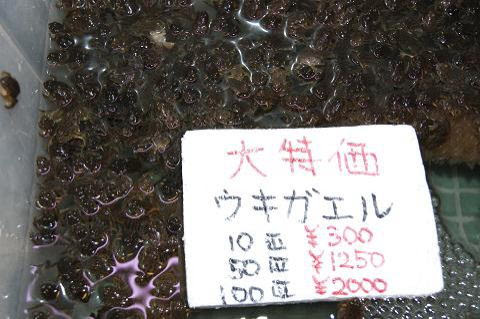 大特価
ウキガエル
10匹 ¥300
50匹 ¥1250
100匹 ¥2000